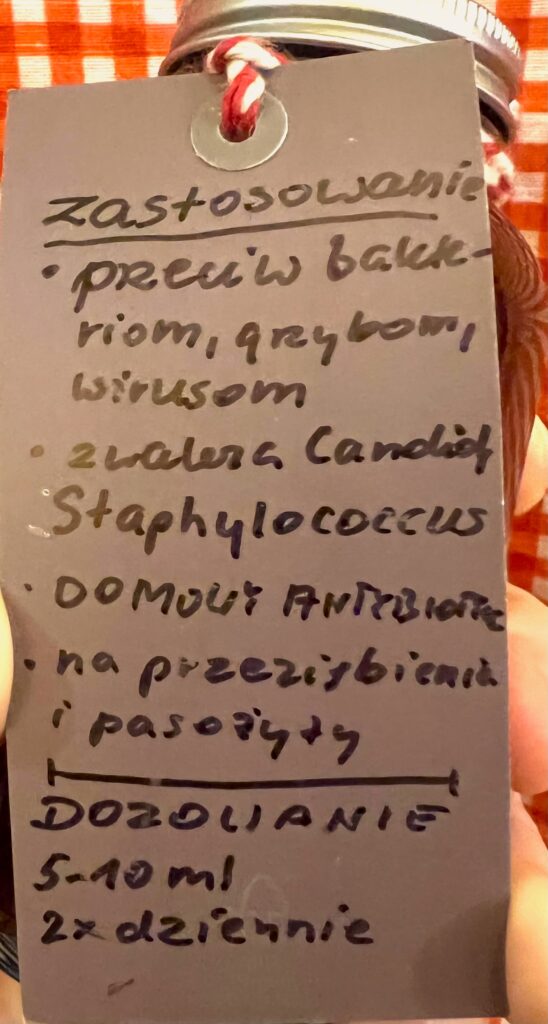 zastosowanie
• przeciw bakte-
riom, grzybom,
wirusom
• zwalcza Candidę
Staphylococcus
• DOMOWY ANTYBIOTYK
• na przeziębienia
i pasożyty
DOZOWANIE
5-10 ml
2x dziennie